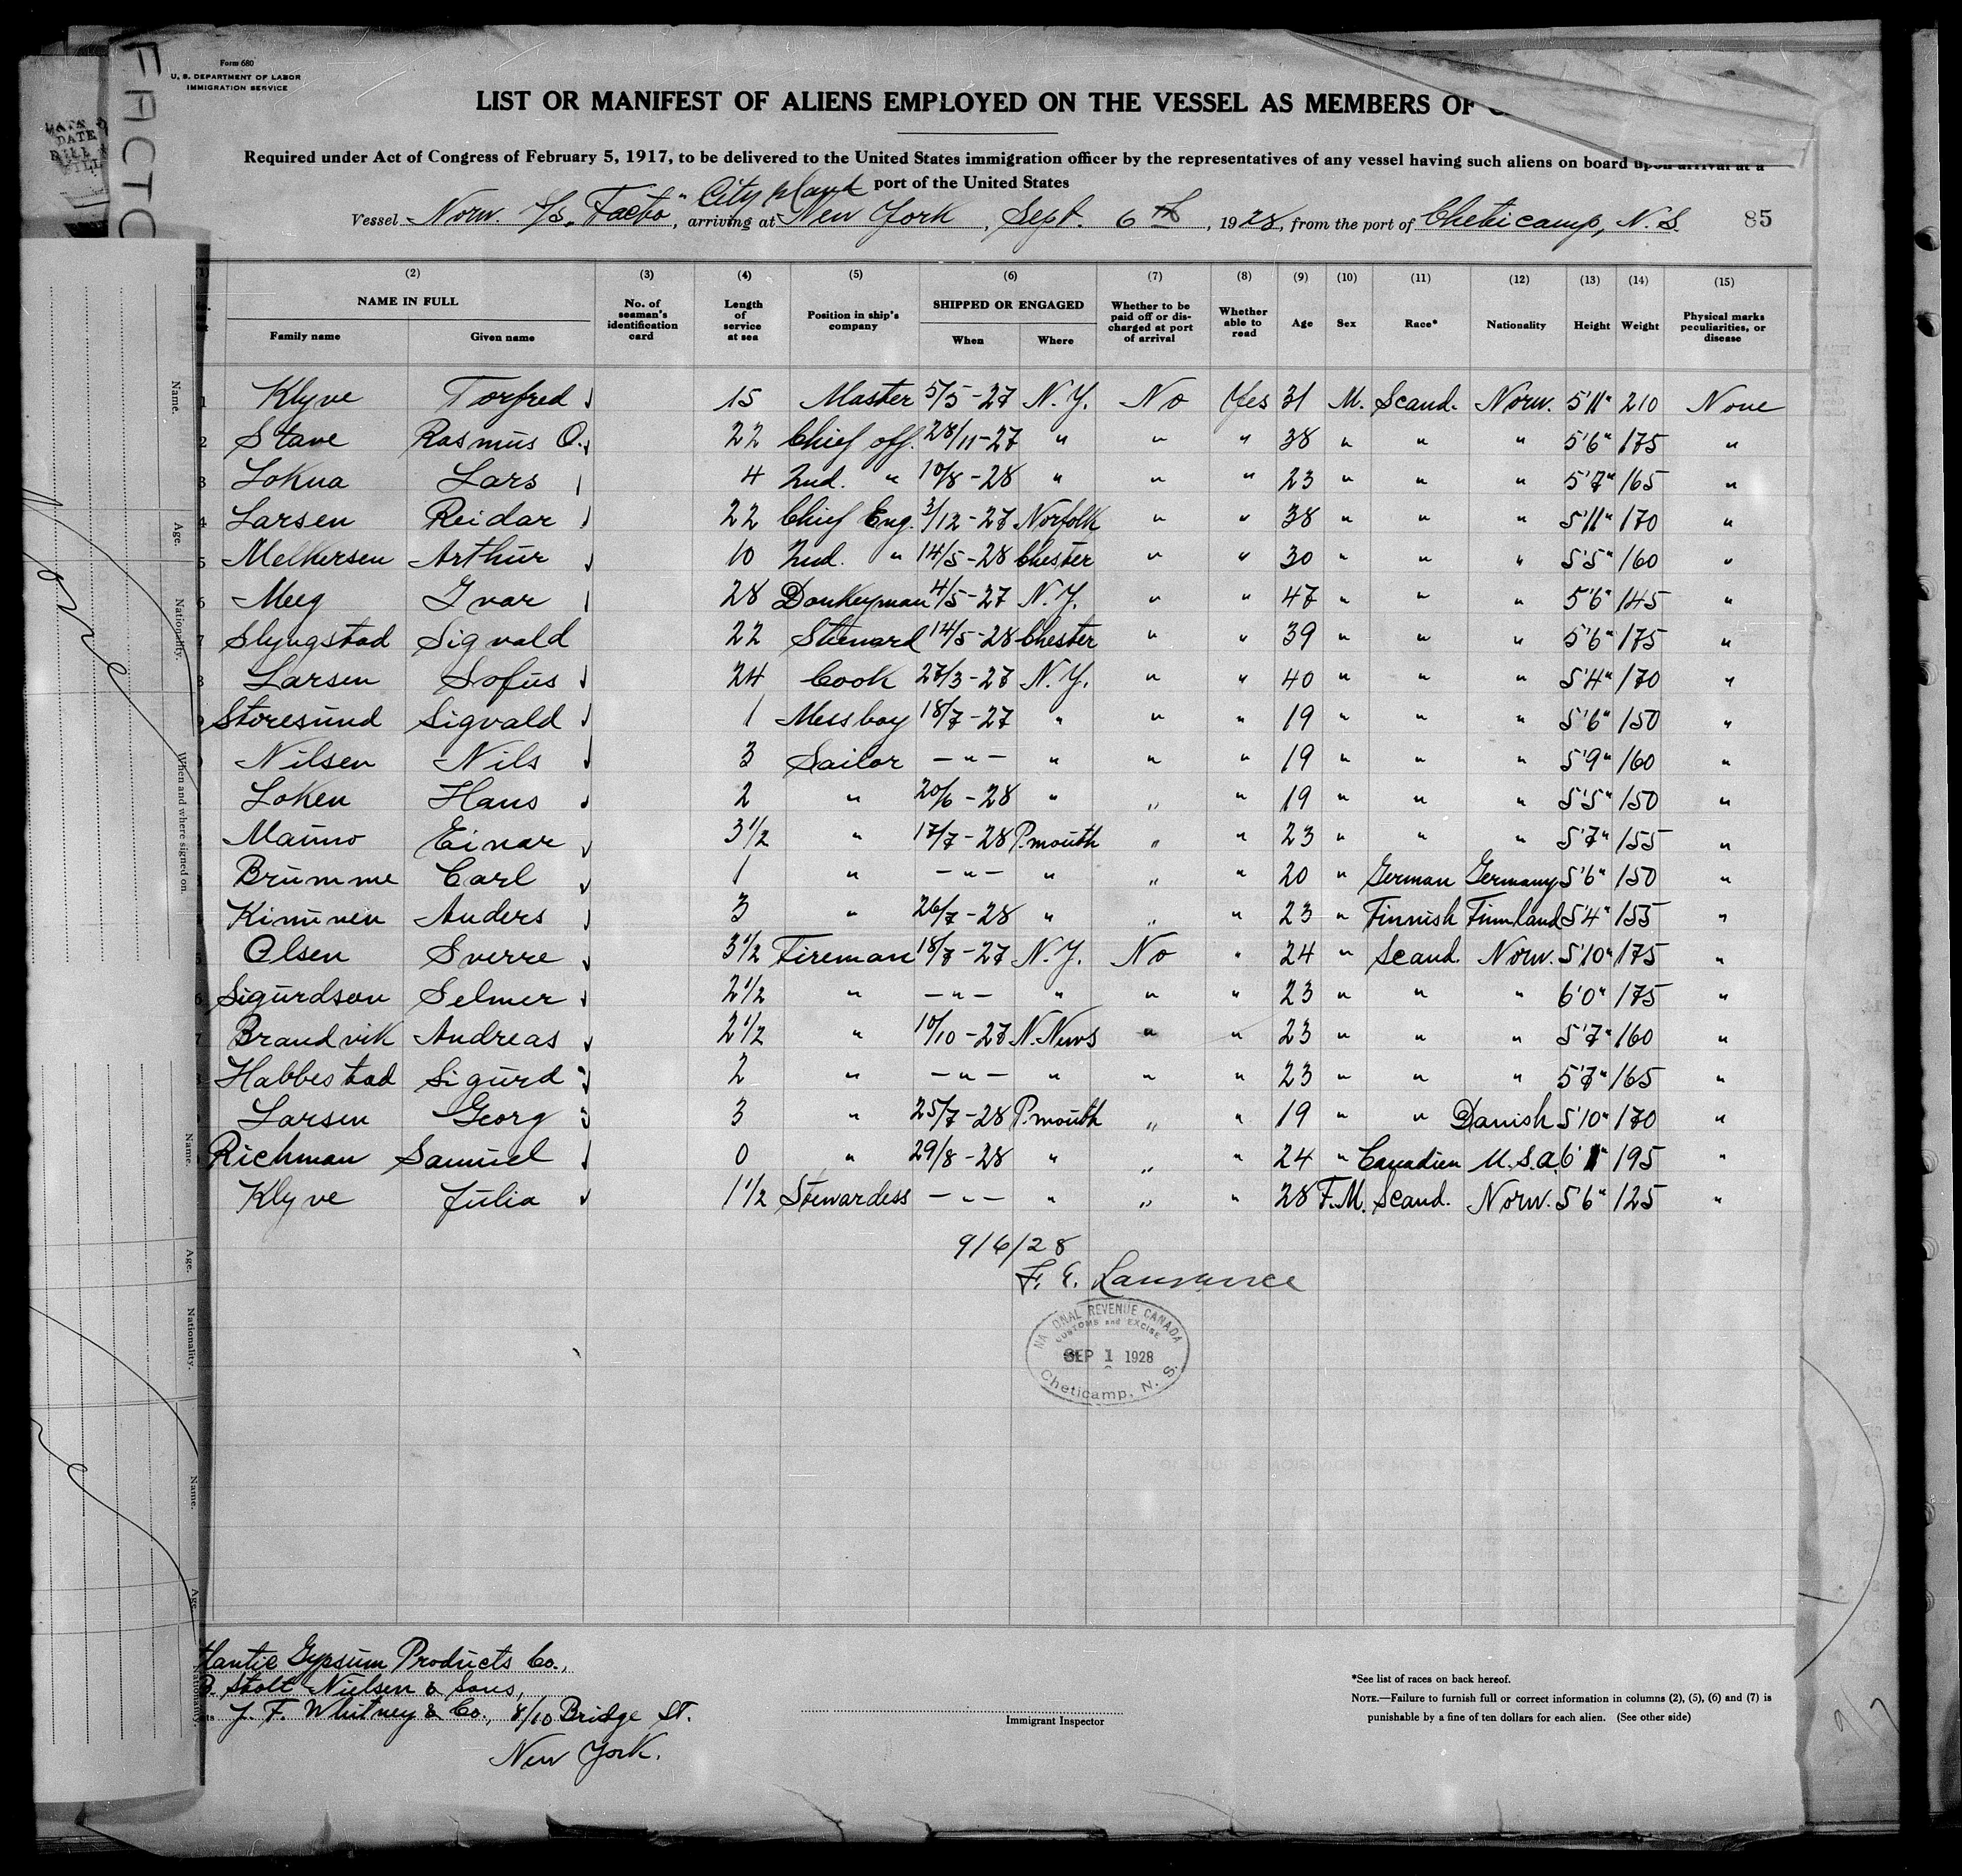 FACTO
Form 680
U. S. DEPARTMENT OF LABOR
IMMIGRATION SERVICE
LIST OR MANIFEST OF ALIENS EMPLOYED ON THE VESSEL AS MEMBERS OF
Required under Act of Congress of February 5, 1917, to be delivered to the United States immigration officer by the representatives of any vessel having such aliens on board upon arrival at a
port of the United States
City Island
Vessel Norw. S/s. "Facto", arriving at New York, Sept. 6th, 1928, from the port of Cheticamp, N. S. 85
(1) (2) (3) (4) (5) (6) (7) (8) (9) (10) (11) (12) (13) (14) (15)
NAME IN FULL
Family name Given name
No. of seaman's identification card
Length of service at sea
Position in ship's company
SHIPPED OR ENGAGED
When Where
Whether to be paid off or discharged at port of arrival
Whether able to read
Age Sex Race* Nationality Height Weight
Physical marks peculiarities, or disease
1 Klyve Torfred 15 Master 5/5-27 N.Y. No Yes 31 M. Scand. Norw. 5'11" 210 None
2 Stave Rasmus O. 22 Chief off. 28/11-27 " " " 38 " " " 5'6" 175 "
3 Lokna Lars 4 2nd. " 10/8-28 " " " 23 " " " 5'7" 165 "
4 Larsen Reidar 22 Chief Eng. 3/12-27 Norfolk " " 38 " " " 5'11" 170 "
5 Melkersen Arthur 10 2nd. " 14/5-28 Chester " " 30 " " " 5'5" 160 "
6 Meeg Ivar 28 Donkeyman 4/5-27 N.Y. " " 47 " " " 5'6" 145 "
7 Slyngstad Sigvald 22 Steward 14/5-28 Chester " " 39 " " " 5'6" 175 "
8 Larsen Sofus 24 Cook 27/3-27 N.Y. " " 40 " " " 5'4" 170 "
Storesund Sigvald 1 Messboy 18/7-27 " " " 19 " " " 5'6" 150 "
Nilsen Nils 3 Sailor -"- " " " 19 " " " 5'9" 160 "
Loken Hans 2 " 20/6-28 " " " 19 " " " 5'5" 150 "
Mauno Einar 3 1/2 " 17/7-28 P.mouth " " 23 " " " 5'7" 155 "
Brumme Carl 1 " -"- " " " 20 " German Germany 5'6" 150 "
Kiminen Anders 3 " 26/7-28 " " " 23 " Finnish Finnland 5'4" 155 "
Olsen Sverre 3 1/2 Fireman 18/7-27 N.Y. No " 24 " Scand. Norw. 5'10" 175 "
6 Sigurdson Selmer 2 1/2 " -"- " " " 23 " " " 6'0" 175 "
7 Brandvik Andreas 2 1/2 " 10/10-27 N.News " " 23 " " " 5'7" 160 "
Habbestad Sigurd 2 " -"- " " " 23 " " " 5'7" 165 "
Larsen Georg 3 " 25/7-28 P.mouth " " 19 " " Danish 5'10" 170 "
Richman Samuel 0 " 29/8-28 " " " 24 " Canadien U.S.A. 6'1" 195 "
Klyve Julia 1 1/2 Stewardess -"- " " " 28 F.M. Scand. Norw. 5'6" 125 "
9/6/28
F. E. Lawrence
NATIONAL REVENUE CANADA
CUSTOMS and EXCISE
SEP 1 1928
Cheticamp, N. S.
tlantic Gypsum Products Co.,
B. Stolt Nielsen & Sons,
J. F. Whitney & Co., 8/10 Bridge St.
New York.
Immigrant Inspector
*See list of races on back hereof.
NOTE.—Failure to furnish full or correct information in columns (2), (5), (6) and (7) is
punishable by a fine of ten dollars for each alien. (See other side)
Name.
Age.
Nationality.
When and where signed on.
None
Name.
Age.
Nationality.
Name.
Age.
Nationality.
9/7